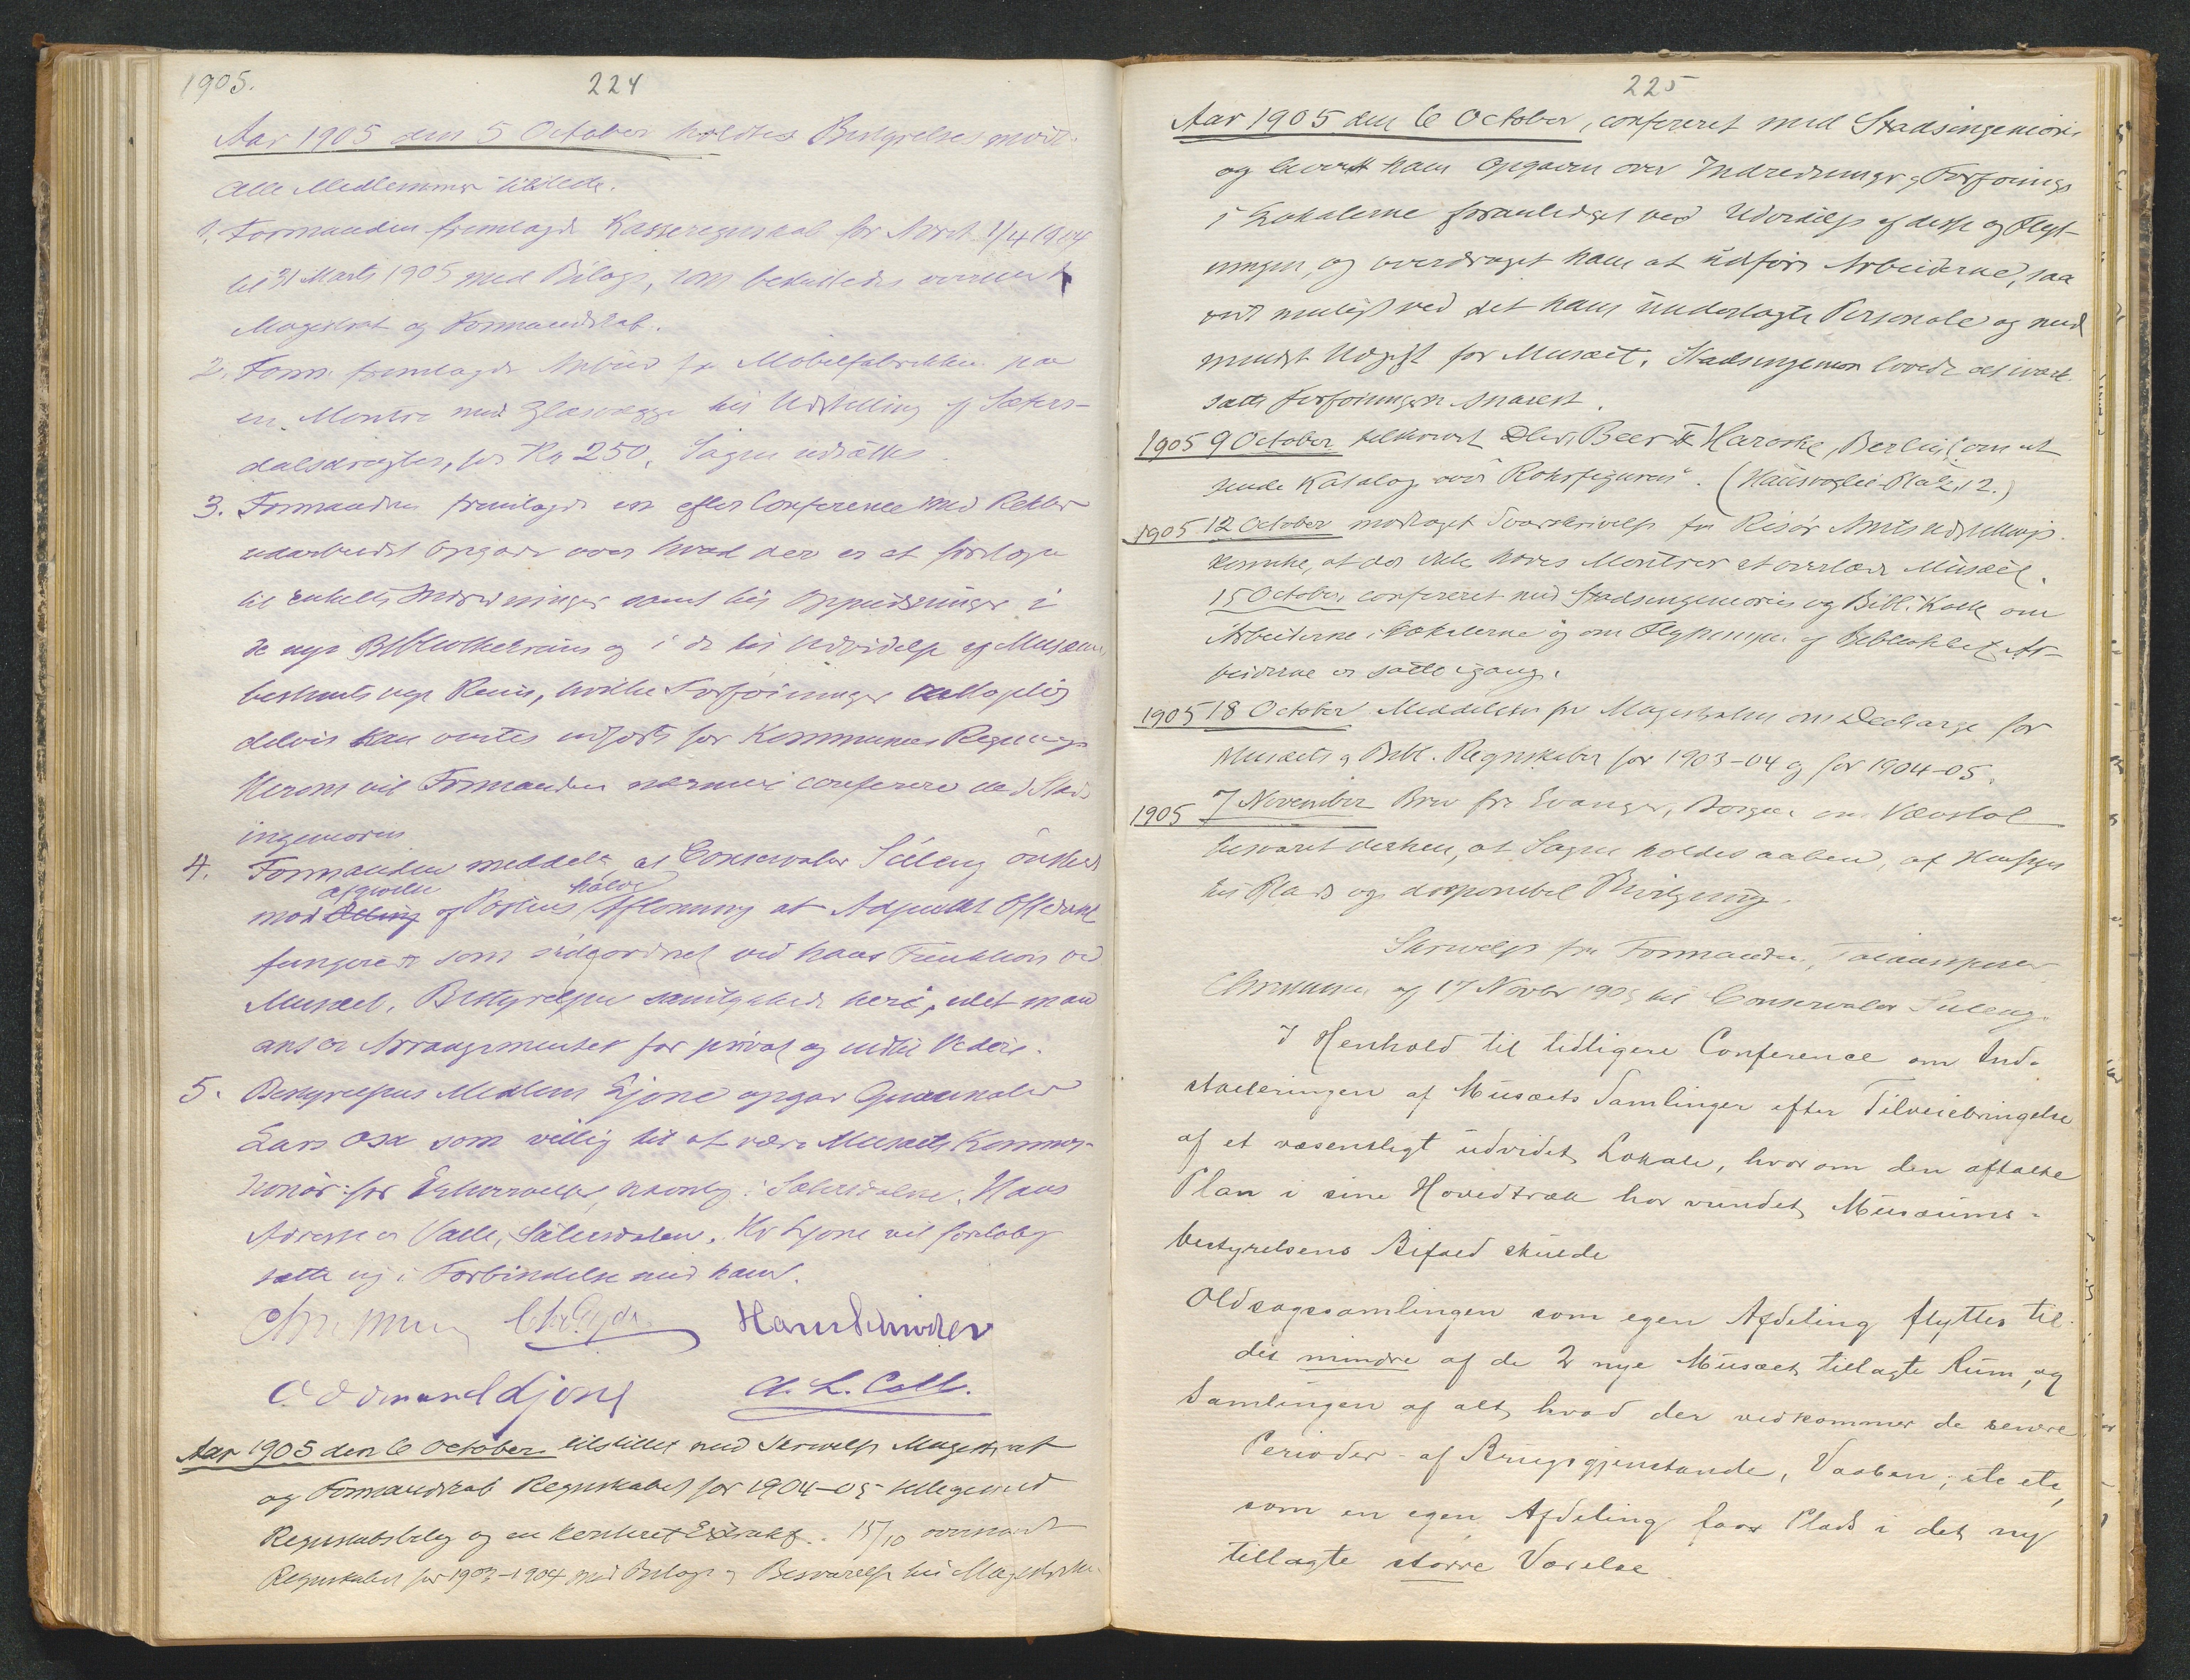 1905.
224
Aar 1905 den 5 October holdtes Bestyrelsesmöde.
Alle Medlemmer tilstede.
1. Formanden fremlagde Kasseregnskab for Aaret 1/4 1904
til 31 Marts 1905 med Bilage, som besluttedes oversendt
Magistrat og Formandskab.
2. Form. fremlagde Anbud fra Möbelfabrikken paa
en Montre med Glasvægge til Udstilling af Sæters-
dalsdragter, for Kr 250. Sagen udsættes.
3. Formanden fremlagde en efter Conference med Rektor
udarbeidet Opgave over hvad der er at foretage
til enkelte Indredninger samt til Oppudsninger i
de nye Bibliothekrum og i de til Udvidelse af Musæum
bestemte nye Rum, hvilke Forföininger
delvis kan ventes udfört for Kommunens Regning.
Herom vil Formanden nærmere conferere med Stads
ingeniören
4. Formanden meddelte at Conservator Suleng önsker
mod afgivelse af Postens halve Aflönning at Adjunkt Oftedahl
fungerer som sideordnet ved hans Funktion ved
Musæet. Bestyrelsen samtykkede heri, idet man
anser Arrangementet for privat og indtil Videre.
5. Bestyrelsens Medlem Ljone opgav
Lars Osa som villig til at være Musæets Kommis-
sionær for Erhvervelser, navnlig i Sætersdalen. Hans
Adresse er Valle, Sætersdalen. Hr Ljone vil foreløbig
sætte sig i Forbindelse med ham.
Hans Schröder
Odmund Ljone A. L. Coll.
Aar 1905 den 6 October tilstillet med Skrivelse Magistrat
og Formandskab Regnskabet for 1904-05 tilligemed
Regnskabsbilag og en Extrakt. 15/10 oversendt
Regnskabet for 1903-1904 med Bilage og Besvarelse til Magistraten
225
Aar 1905 den 6 October, confereret med Stadsingeniören
og leveret ham Opgaven over Indredninger og Forföininger
i Lokalerne foranlediget ved Udvidelse af disse og Flyt-
ningen, og overdraget ham at udföre Arbeiderne, saa
vidt muligt ved det ham underlagte Personale og med
mindst Udgift for Musæet. Stadsingeniören lovede at iværk
sætte Forföiningerne snarest.
1905 9 October tilskrevet Beer & Haroske, Berlin, om at
sende Katalog over "Rohrfiguren". (Hausvogtei-Platz, 12.)
1905 12 October modtaget Svarskrivelse fra Risör Amts Udstillings
komite, at der ikke haves Montrer at overlade Musæet.
15 October confereret med Stadsingeniören og Bibl. Kolle om
Arbeiderne i Lokalerne og om Flytningen af Bibliothet. Ar-
beiderne er satte igang.
1905 18 October Meddelelse fra Magistraten om Decharge for
Musæets og Bibl. Regnskaber for 1903-04 og for 1904-05.
1905 7 November Brev fra Evanger, Bergen om Vævstol
besvaret derhen, at Sagen holdes aaben, af Hensyn
til Plads og disponibel Bevilgning.
Skrivelse fra Formanden, Toldinspektör
Christensen af 17 Novbr 1905 til Conservator Suleng.
I Henhold til tidligere Conference om Ind-
stalleringen af Musæets Samlinger efter Tilveiebringelse
af et væsentligt udvidet Lokale, hvorom den aftalte
Plan i sine Hovedtræk har vundet Musæums-
bestyrelsens Bifald skulde
Oldsagssamlingen som egen Afdeling flyttes til
det mindre af de 2 nye Musæet tillagte Rum, og
Samlingen af alt, hvad der vedkommer de senere
Perioder - af Brugsgjenstande, Vaaben, etc etc,
som en egen Afdeling faar Plads i det ny
tillagte större Værelse